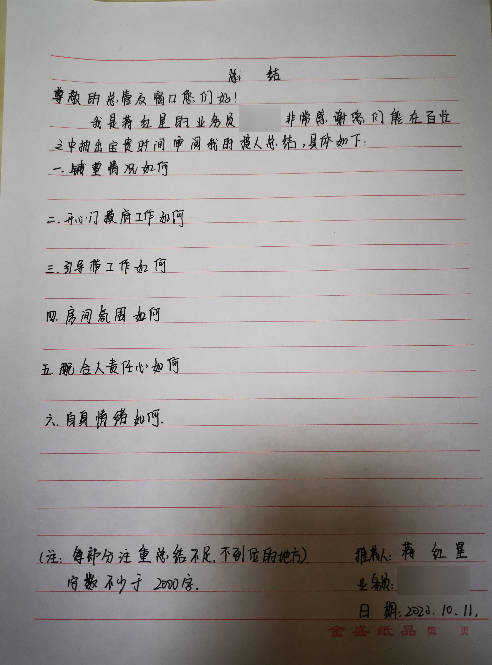 总 结
尊敬的总管及窗口您们好!
我是蒋红星的业务员 非常感谢您们能在百忙
之中抽出宝贵时间审阅我的接人总结,具体如下:
一.铺垫情况如何
二.开心门教府工作如何
三.引导带工作如何
四.房间氛围如何
五.配合人责任心如何
六.自身情绪如何.
(注:每部分注重总结不足,不到位的地方) 推荐人:蒋 红 星
字数不少于2000字. 业务员:
日 期:2020.10.11.
金盛纸品 第 页